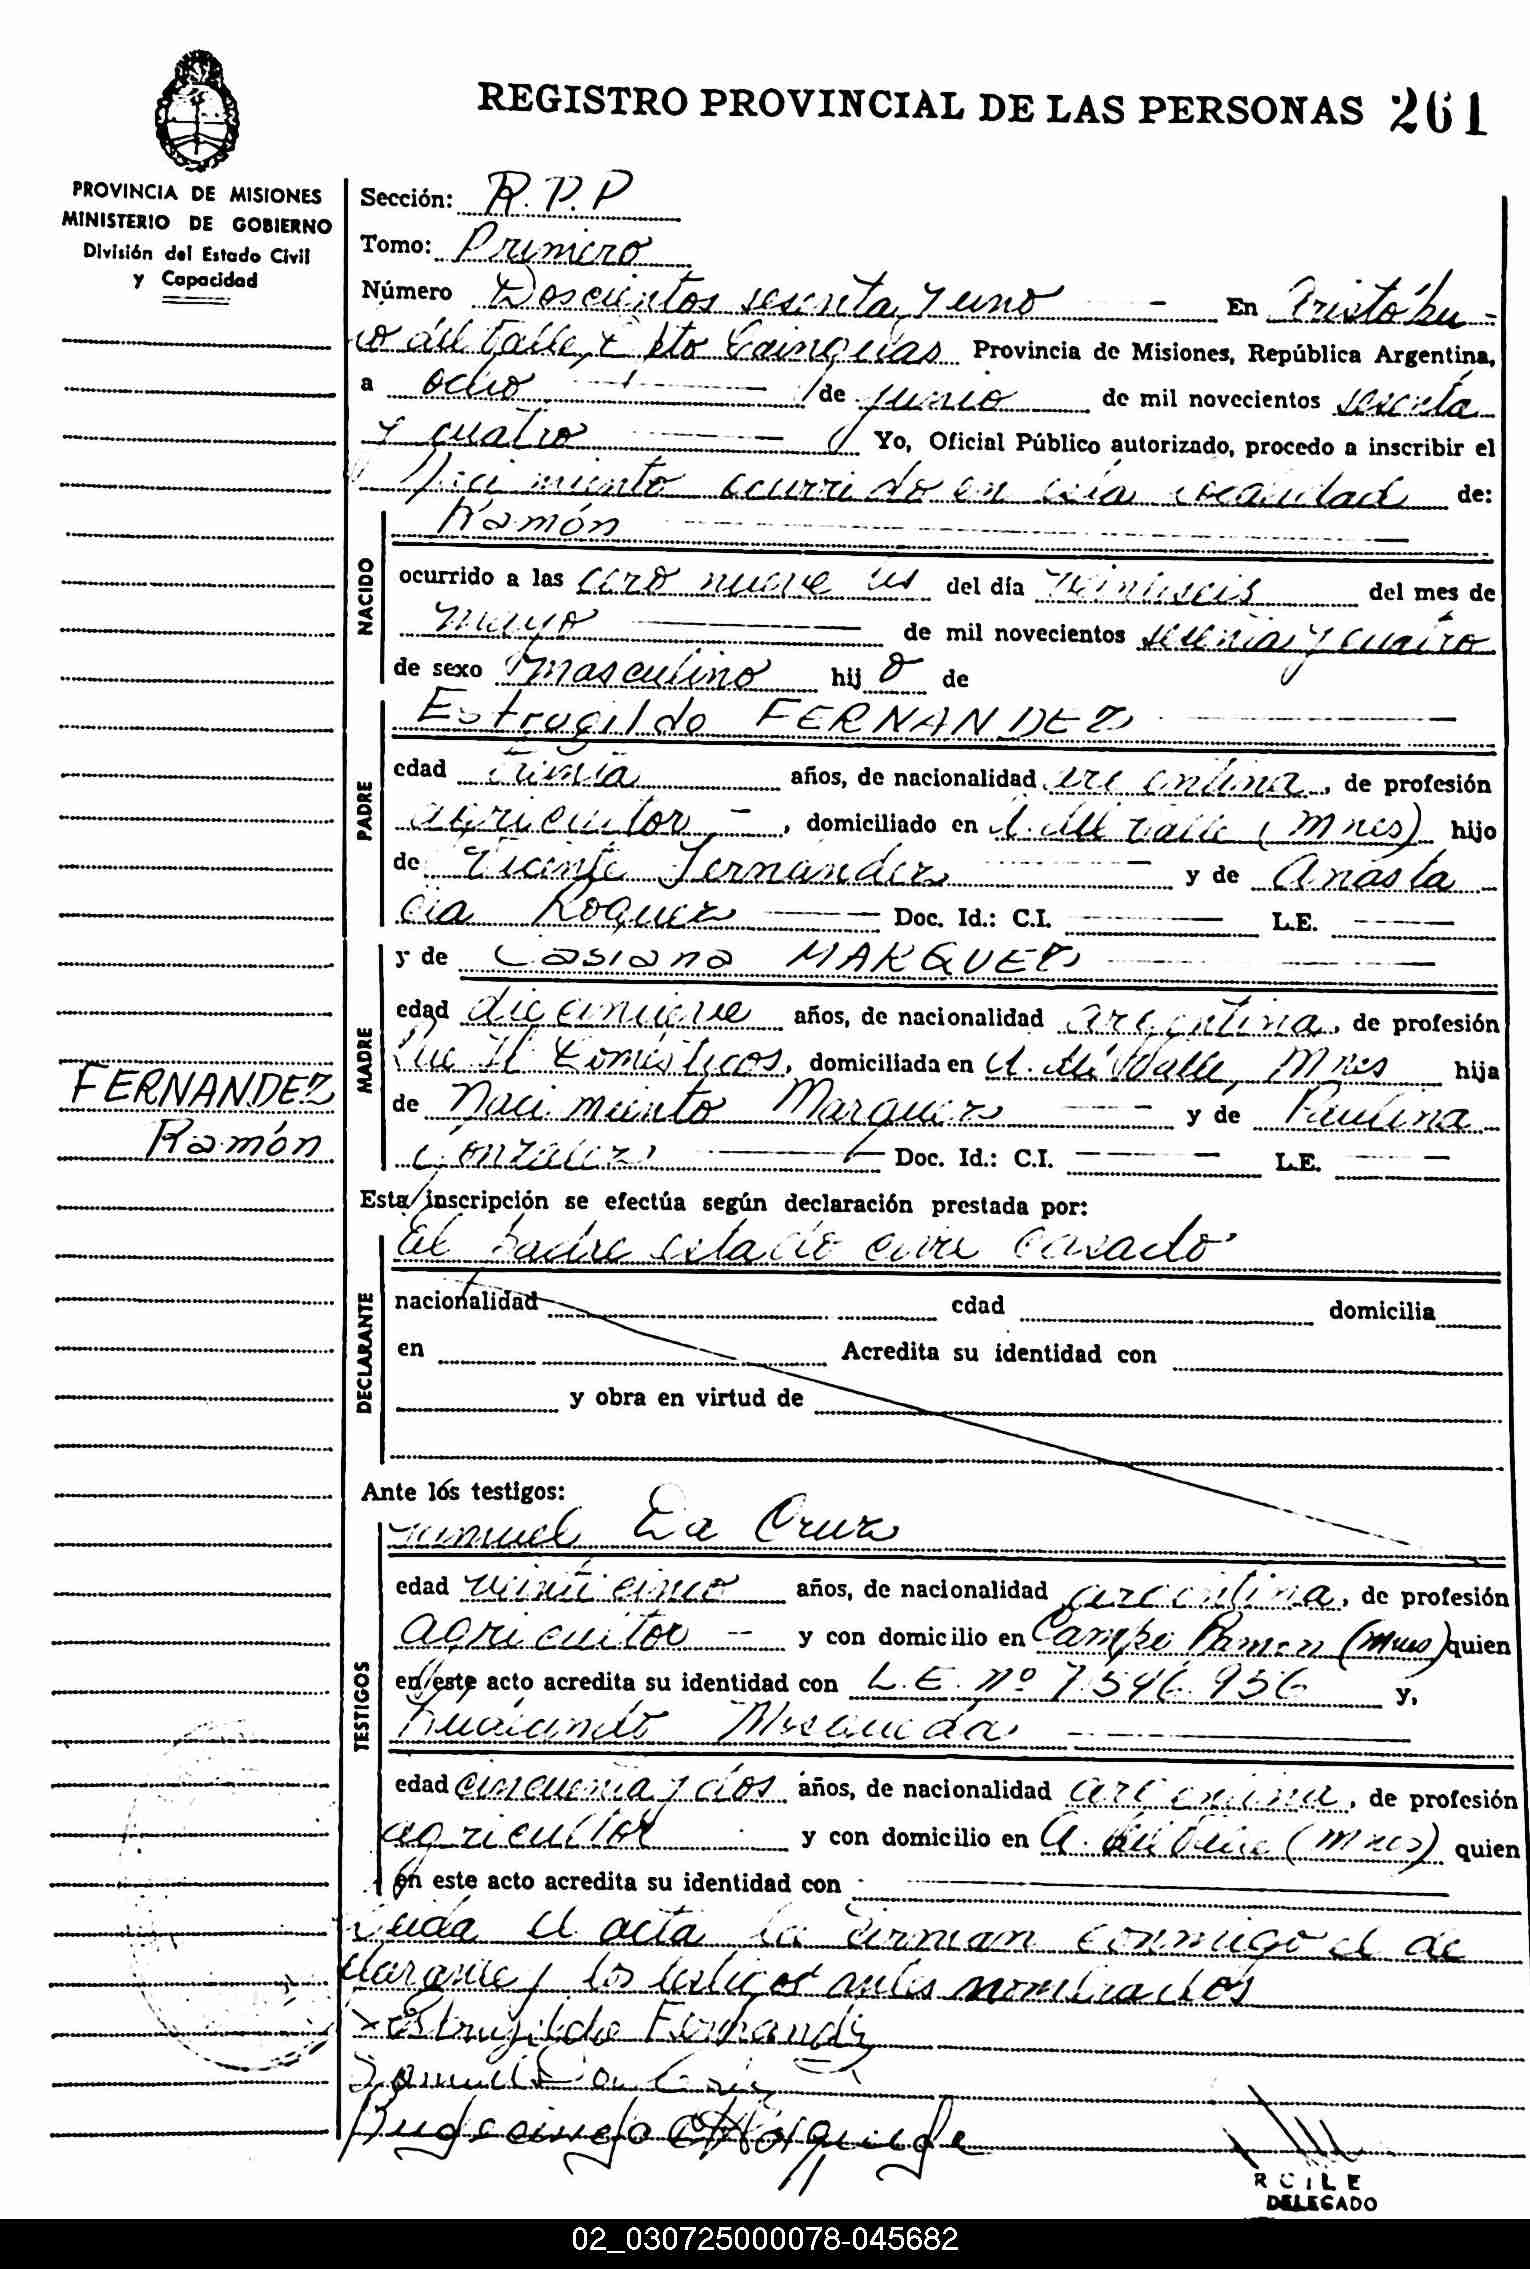 REGISTRO PROVINCIAL DE LAS PERSONAS 261
PROVINCIA DE MISIONES
MINISTERIO DE GOBIERNO
División del Estado Civil
y Capacidad
Sección: R.P.P
Tomo: Primero
Número Doscientos sesenta y uno — En Aristóbu-
lo del Valle, Dpto Cainguas Provincia de Misiones, República Argentina,
a ocho — de junio de mil novecientos sesenta
y cuatro — Yo, Oficial Público autorizado, procedo a inscribir el
Nacimiento ocurrido en esta localidad de:
NACIDO
Ramón
ocurrido a las cero nueve hs del día veintiseis del mes de
mayo — de mil novecientos sesenta y cuatro
de sexo masculino hij o de
PADRE
Estrugildo FERNANDEZ
edad treinta años, de nacionalidad argentina, de profesión
agricultor -, domiciliado en A. del Valle (Mnes) hijo
de Vicente Fernández — y de Anasta-
cia Roquez — Doc. Id.: C.I. — L.E. —
MADRE
y de Casiana MARQUEZ
edad diecinueve años, de nacionalidad argentina, de profesión
Domésticos, domiciliada en A. del Valle, Mnes hija
de Nacimiento Marquez — y de Paulina
González — Doc. Id.: C.I. — L.E. —
FERNANDEZ
Ramón
Esta inscripción se efectúa según declaración prestada por:
DECLARANTE
El padre estado civil casado
nacionalidad edad domicilia
en Acredita su identidad con
y obra en virtud de
Ante los testigos:
TESTIGOS
Samuel Da Cruz
edad veinticinco años, de nacionalidad argentina, de profesión
agricultor -- y con domicilio en Campo Ramon (Mnes) quien
en este acto acredita su identidad con L.E. nº 7.546.956 y,
edad cincuenta y dos años, de nacionalidad argentina, de profesión
agricultor y con domicilio en A. del Valle (Mnes) quien
en este acto acredita su identidad con
Leida el acta la firman conmigo el de
clarante y los testigos antes nombrados
Estrugildo Fernandz
Samuel Da Cruz
DELEGADO
02_030725000078-045682